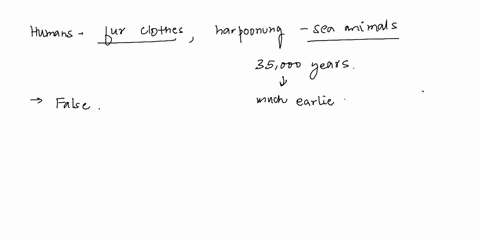 Humans - fur clothes, harpoonung - sea animals
35,000 years.
↓
→ False. much earlie.